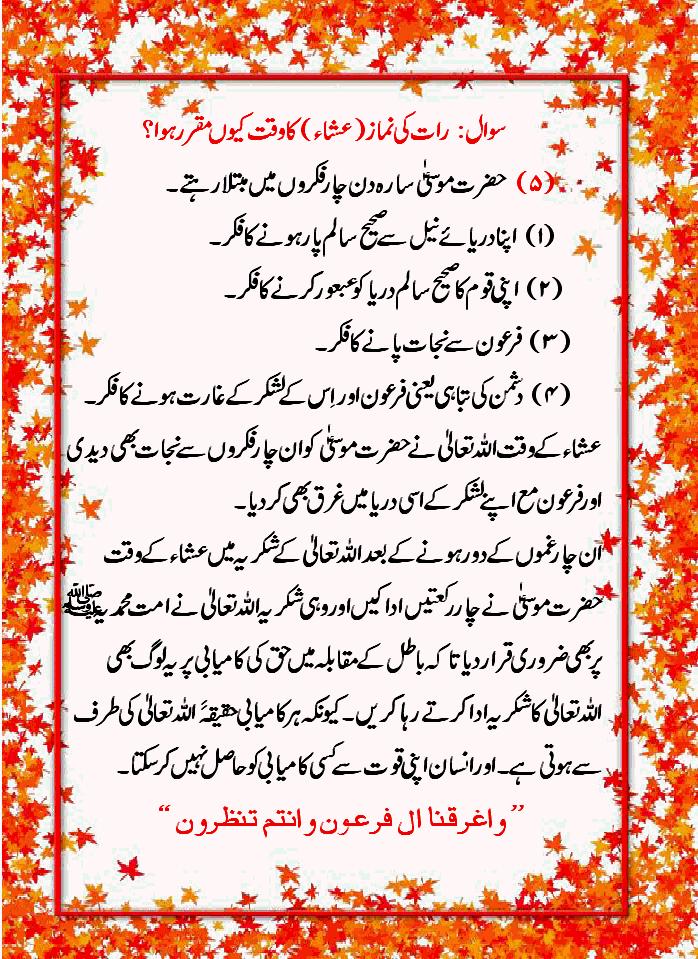 سوال: رات کی نماز (عشاء) کا وقت کیوں مقرر ہوا؟
(۵) حضرت موسیٰ سارہ دن چار فکروں میں مبتلا رہتے۔
(۱) اپنا دریائے نیل سے صحیح سالم پار ہونے کا فکر۔
(۲) اپنی قوم کا صحیح سالم دریا کو عبعور کرنے کا فکر۔
(۳) فرعون سے نجات پانے کا فکر۔
(۴) دشمن کی تباہی یعنی فرعون اور اِس کے لشکر کے غارت ہونے کا فکر۔
عشاء کے وقت اللہ تعالیٰ نے حضرت موسیٰ کو ان چار فکروں سے نجات بھی دیدی
اور فرعون مع اپنے لشکر کے اسی دریا میں غرق بھی کر دیا۔
ان چار غموں کے دور ہونے کے بعد اللہ تعالیٰ کے شکریہ میں عشاء کے وقت
حضرت موسیٰ نے چار رکعتیں ادا کیں اور وہی شکریہ اللہ تعالیٰ نے امت محمدیہ ﷺ
پر بھی ضروری قرار دیا تا کہ باطل کے مقابلہ میں حق کی کامیابی پر یہ لوگ بھی
اللہ تعالیٰ کا شکریہ ادا کرتے رہا کریں۔ کیونکہ ہر کامیابی حقیقۃً اللہ تعالیٰ کی طرف
سے ہوتی ہے۔ اور انسان اپنی قوت سے کسی کامیابی کو حاصل نہیں کر سکتا۔
”واغرقنا ال فرعون وانتم تنظرون“